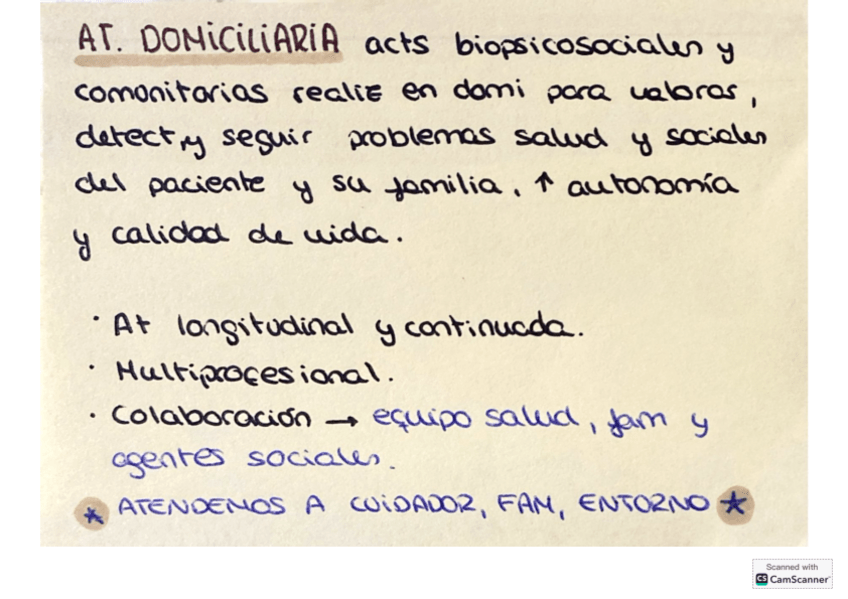 AT. DOMICILIARIA acts biopsicosociales y
comunitarias realiz en domi para valorar,
detect, y seguir problemas salud y sociales
del paciente y su familia, ↑ autonomía
y calidad de vida.
· At longitudinal y continuada.
· Multiprofesional.
· Colaboración → equipo salud, fam y
agentes sociales.
* ATENDEMOS A CUIDADOR, FAM, ENTORNO *
Scanned with
CS CamScanner